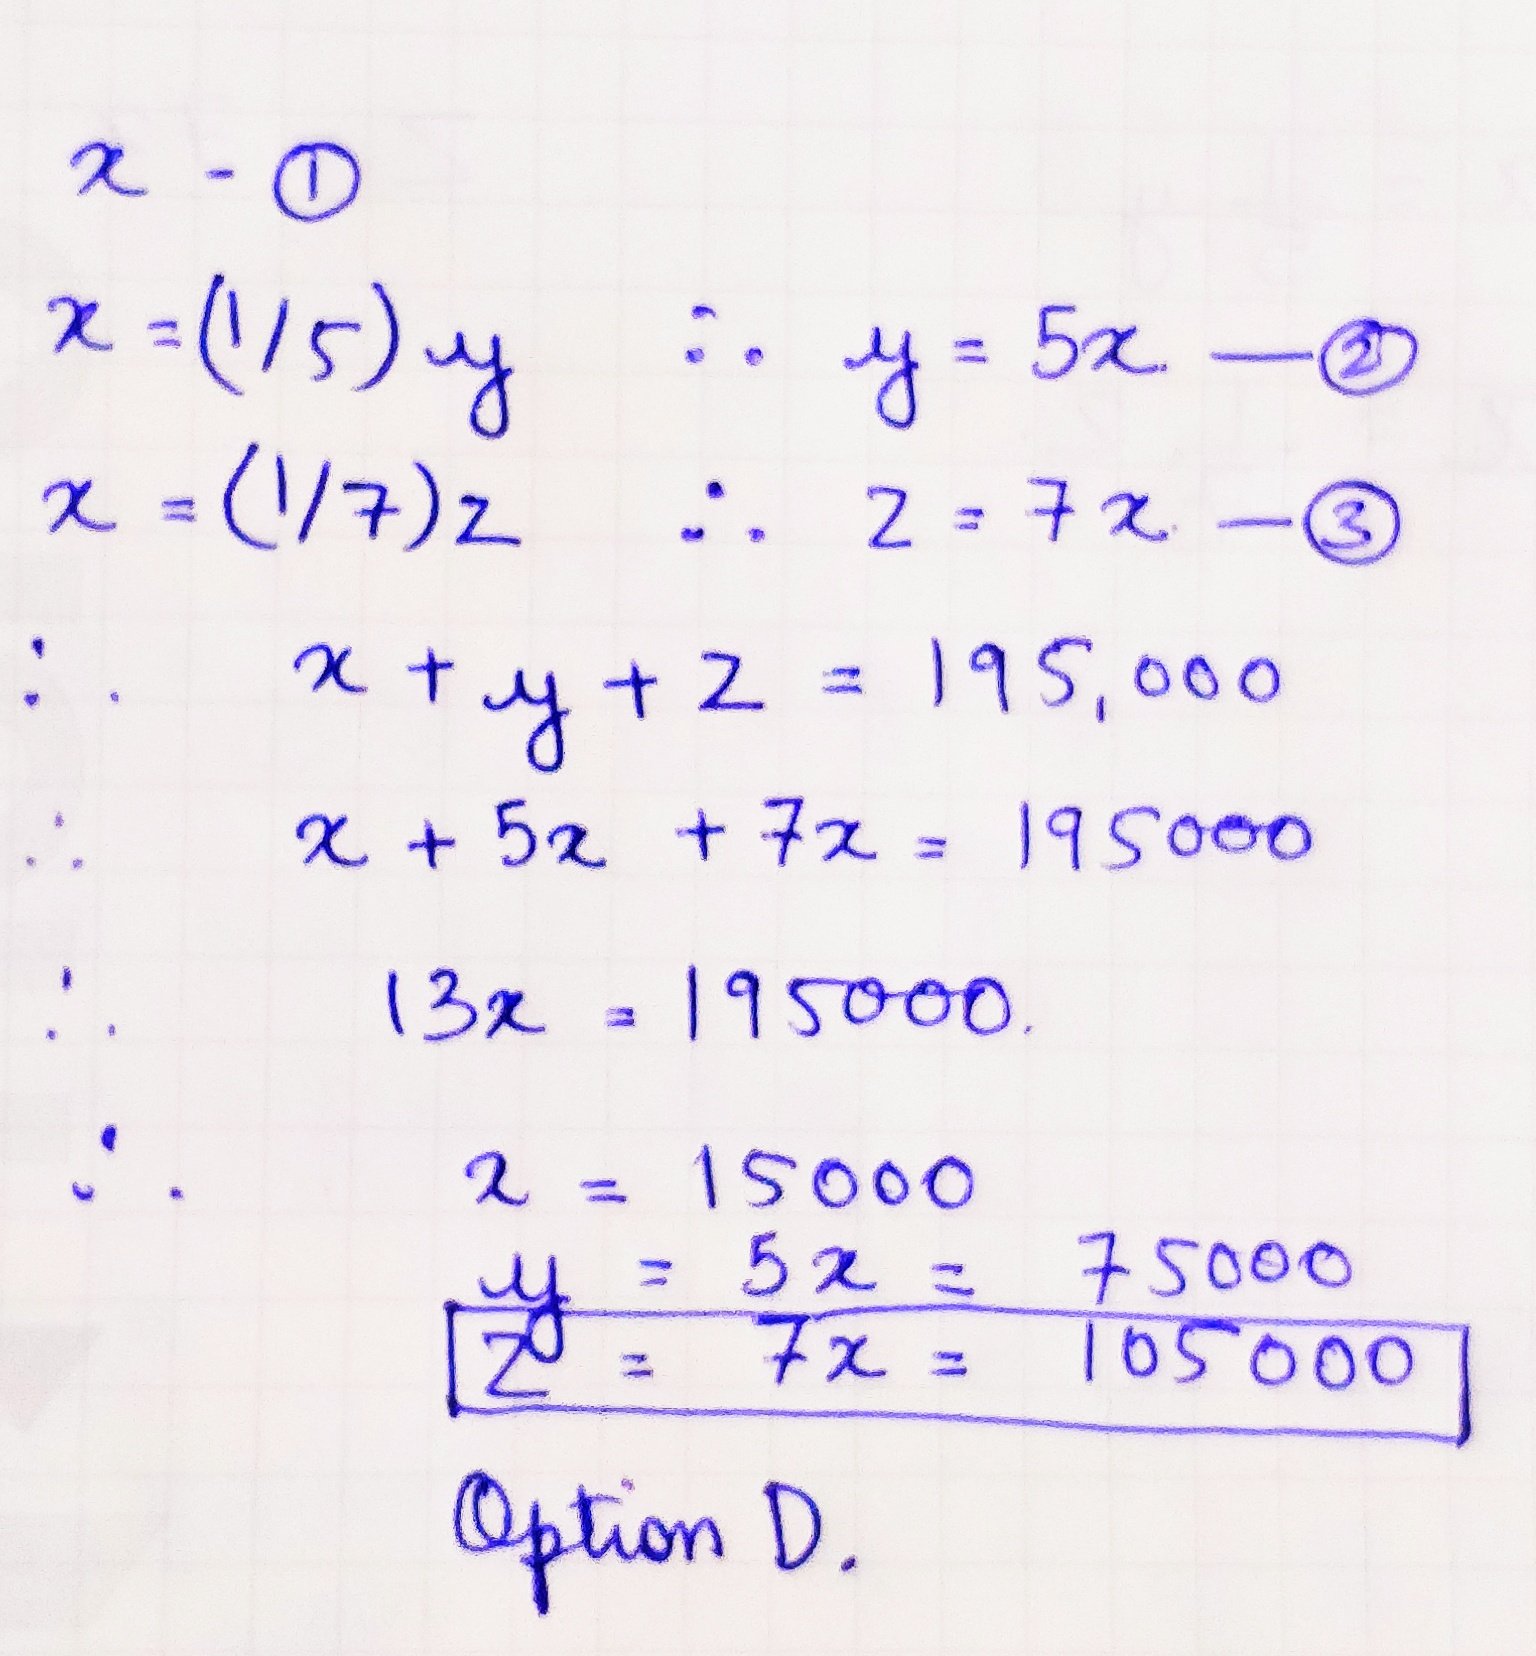 x - ①
x = (1/5) y ∴ y = 5x. — ②
x = (1/7) z ∴ z = 7x. — ③
∴ x + y + z = 195,000
∴ x + 5x + 7x = 195000
∴ 13x = 195000.
∴ x = 15000
y = 5x = 75000
z = 7x = 105000
Option D.